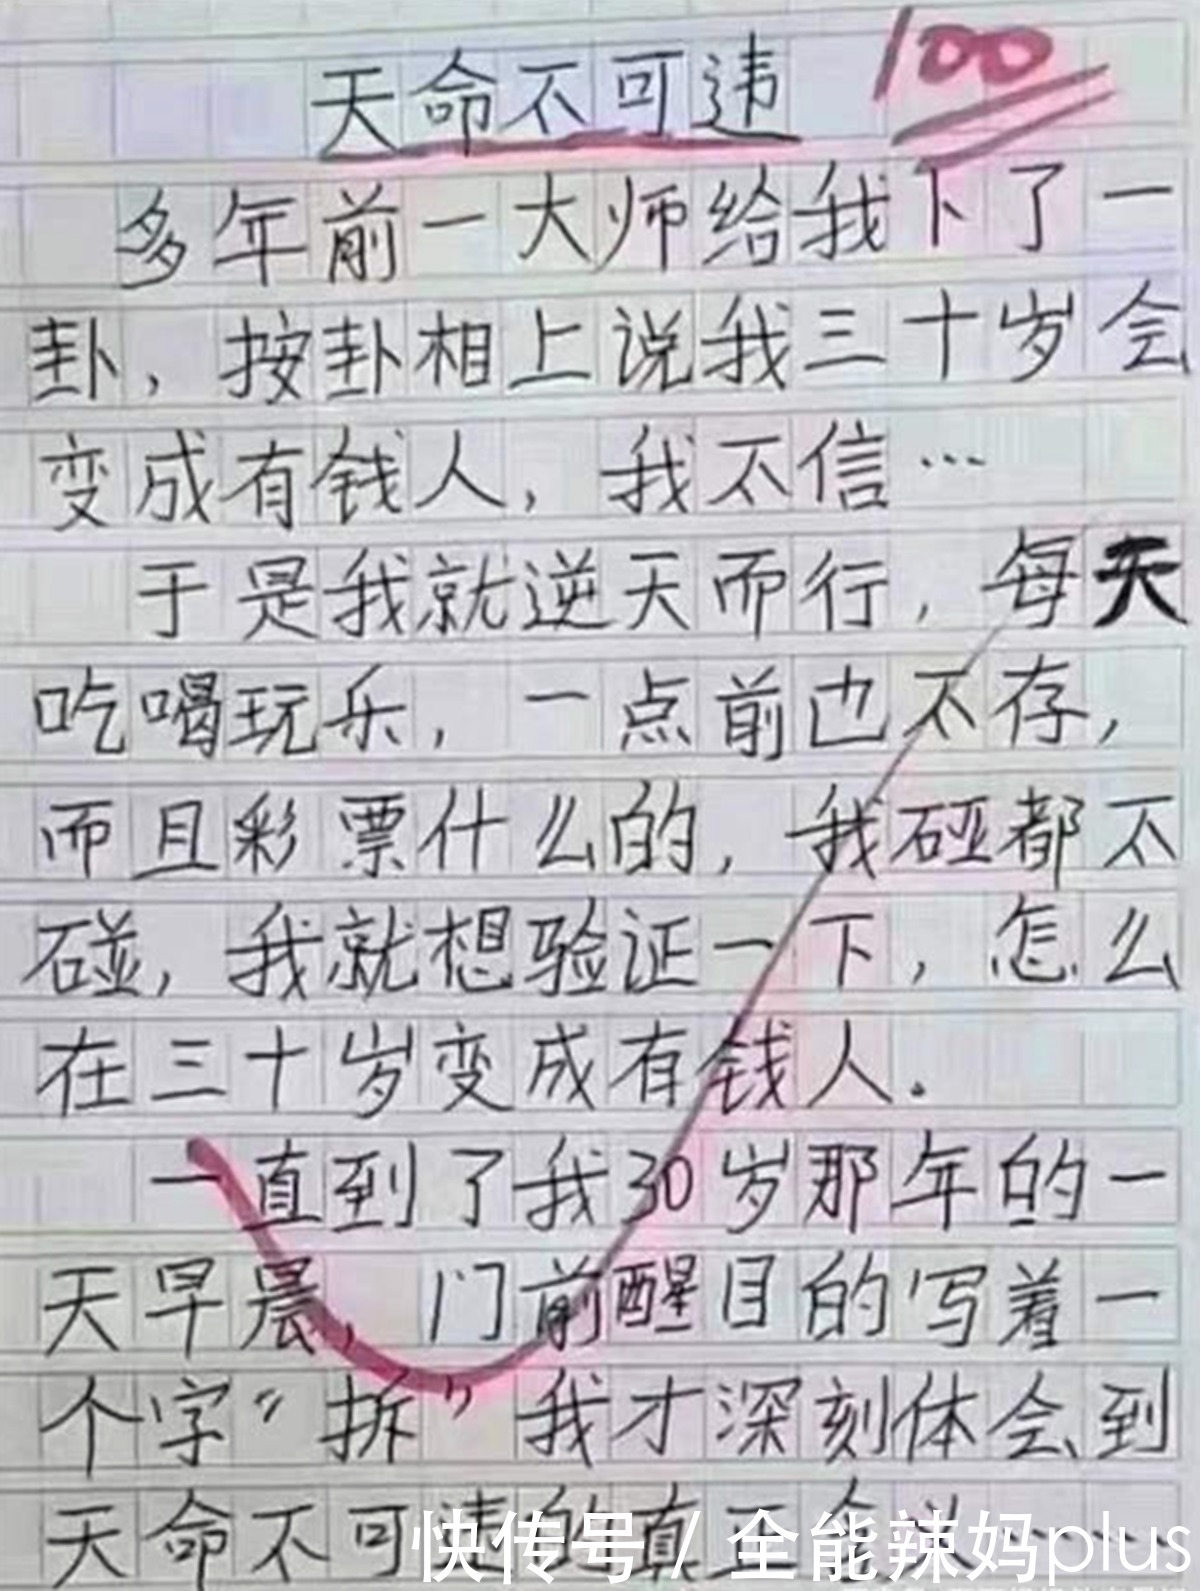 天命不可违
100
多年前一大师给我下了一
卦，按卦相上说我三十岁会
变成有钱人，我不信…
于是我就逆天而行，每天
吃喝玩乐，一点前也不存，
而且彩票什么的，我碰都不
碰，我就想验证一下，怎么
在三十岁变成有钱人。
一直到了我30岁那年的一
天早晨，门前醒目的写着一
个字“拆”我才深刻体会到
天命不可违的真正含义……
快传号/全能辣妈plus